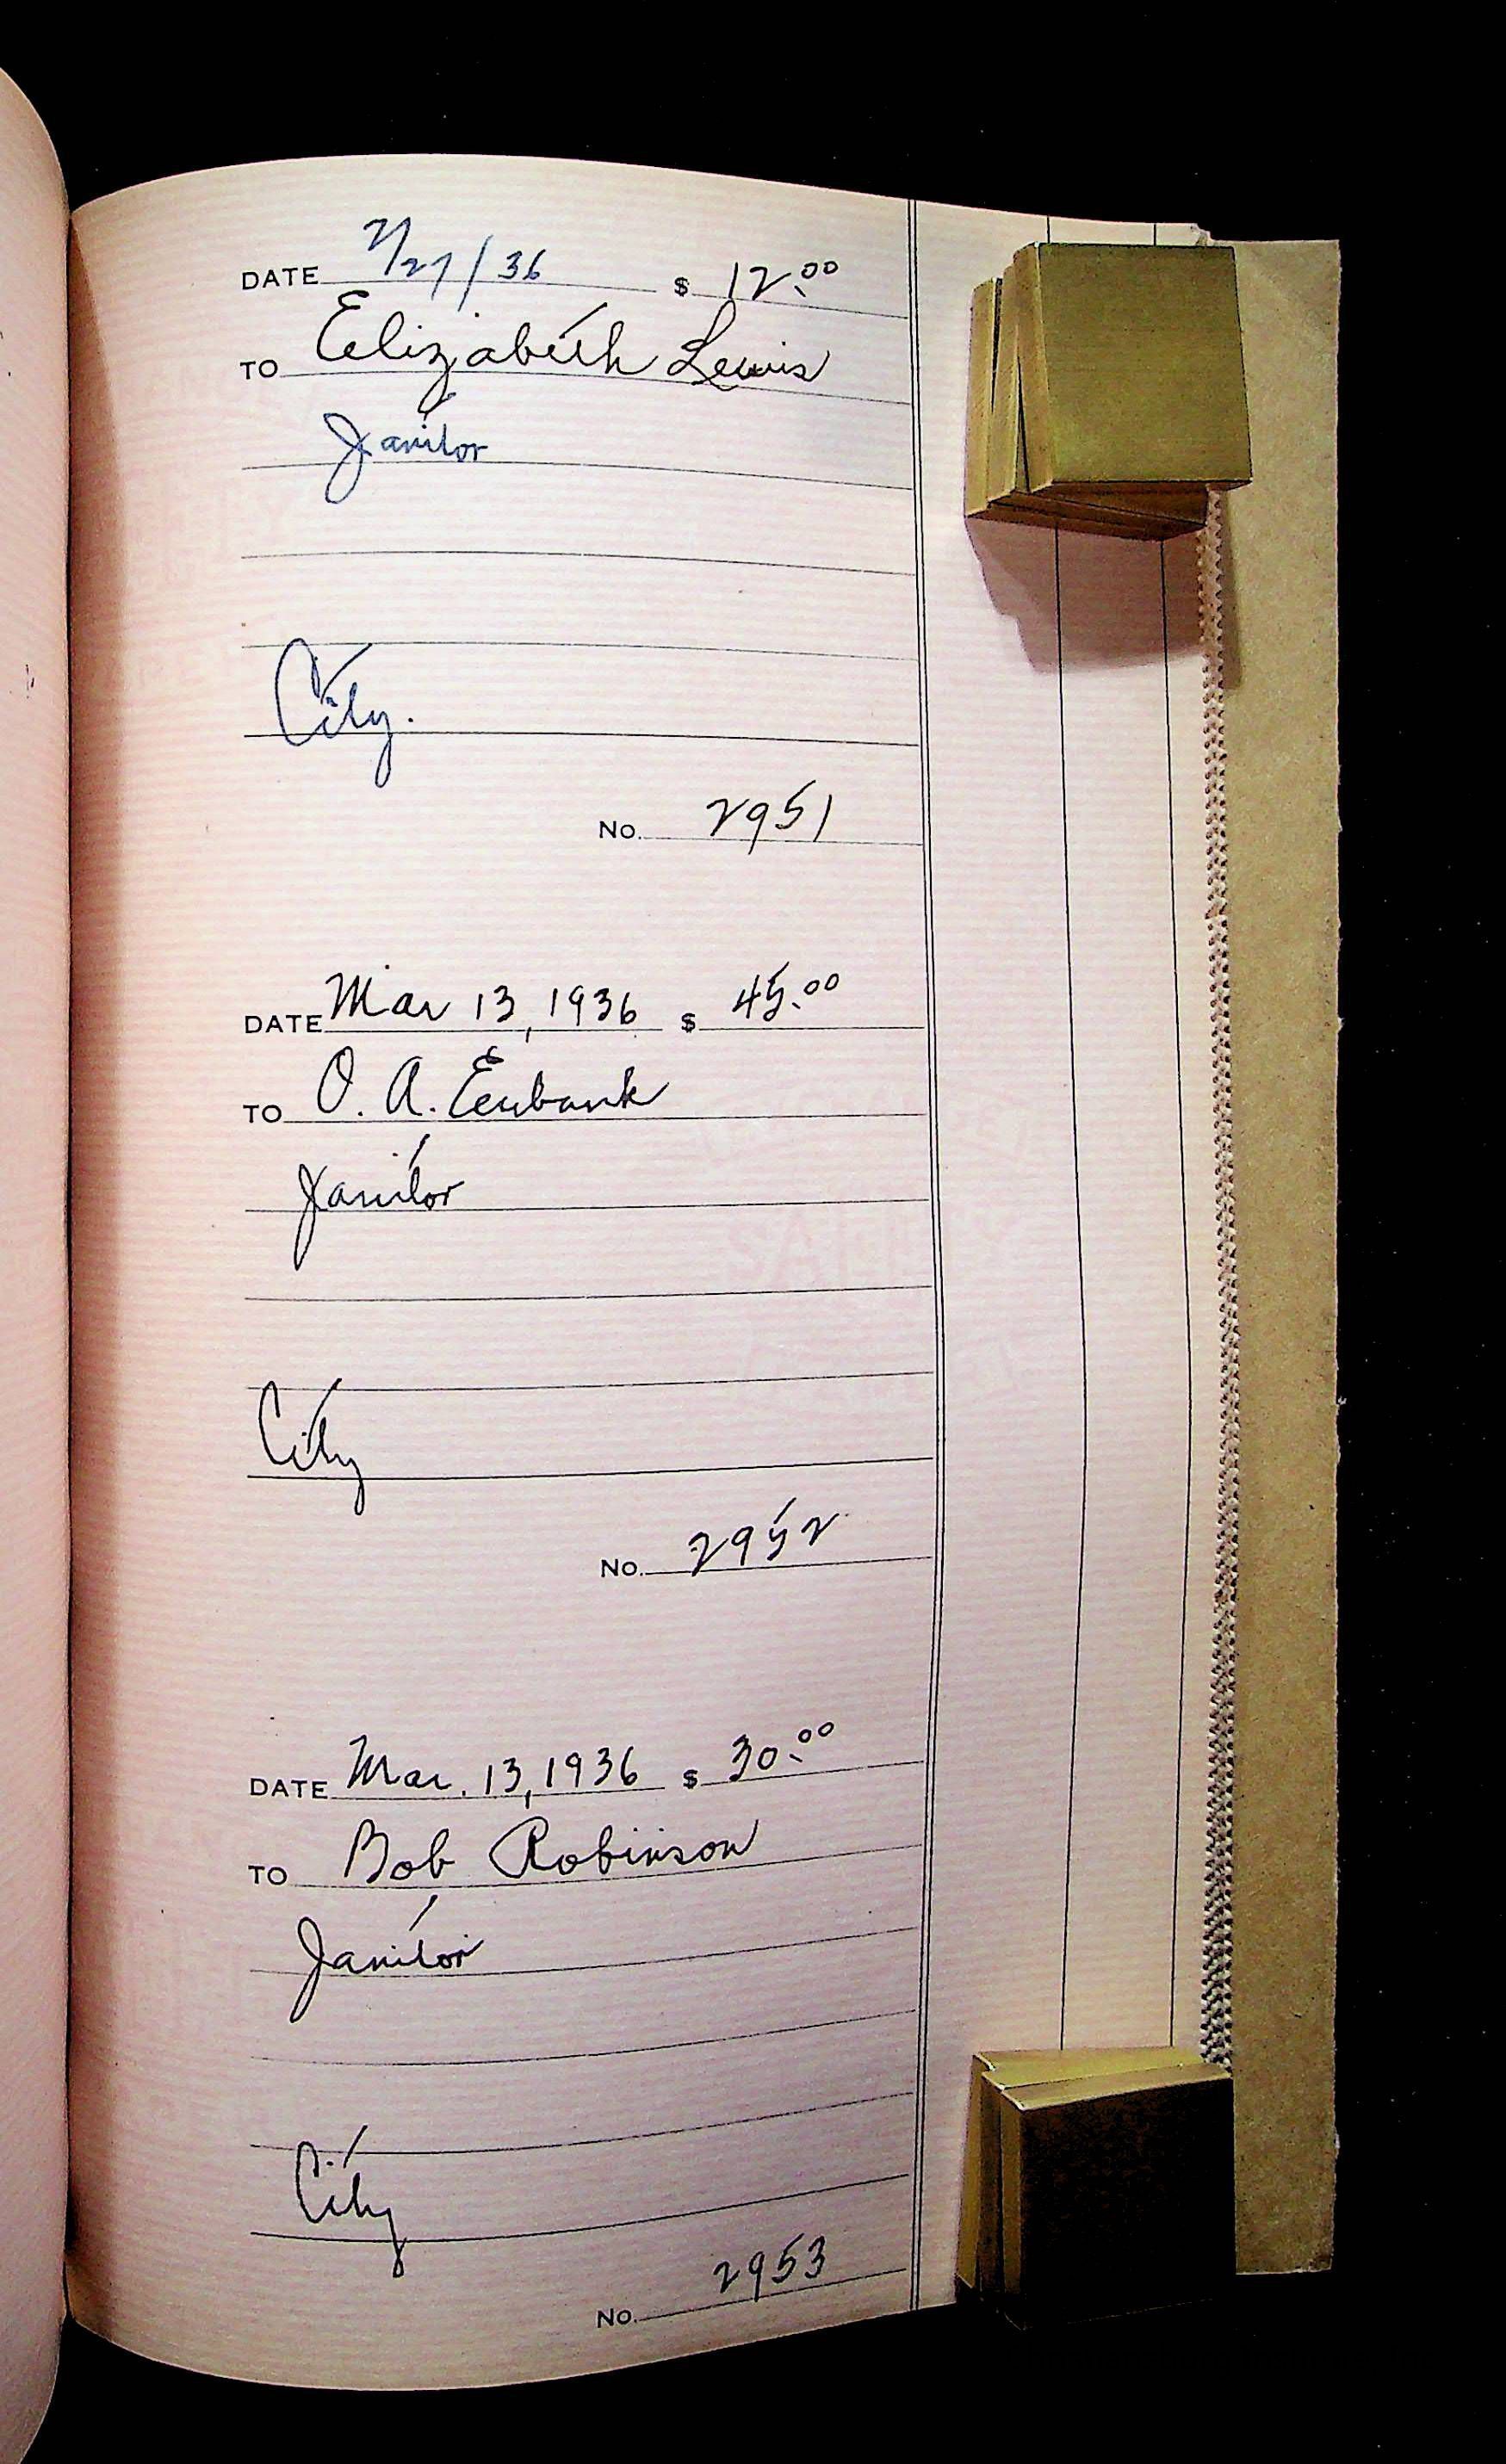 DATE 2/27/36 $ 12.00
TO Elizabeth Lewis
Janitor
City.
No. 2951
DATE Mar 13, 1936 $ 45.00
TO O. A. Eubank
Janitor
City
No. 2952
DATE Mar. 13, 1936 $ 30.00
TO Bob Robinson
Janitor
City
No. 2953